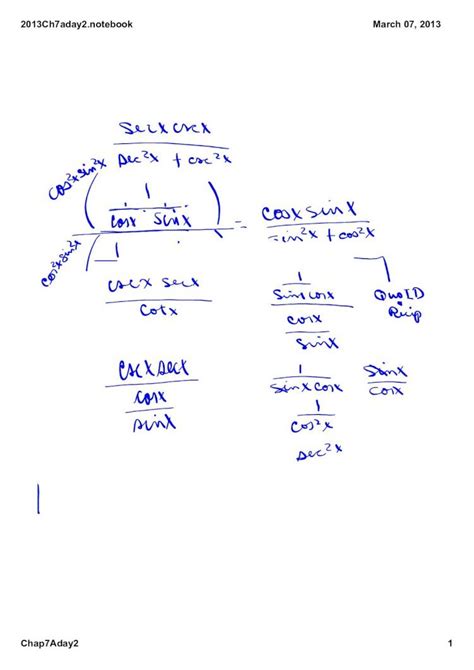 2013Ch7aday2.notebook March 07, 2013
secx cscx
sec²x + csc²x
cos²x sin²x
1
cosx · sinx
cos²x sin²x
1
= cosx sinx
sin²x + cos²x
cscx secx
cotx
1
sinx cosx
cosx
sinx
Quo ID
Recip
cscx secx
cosx
sinx
1
sinx cosx
sinx
cosx
1
cos²x
sec²x
Chap7Aday2 1